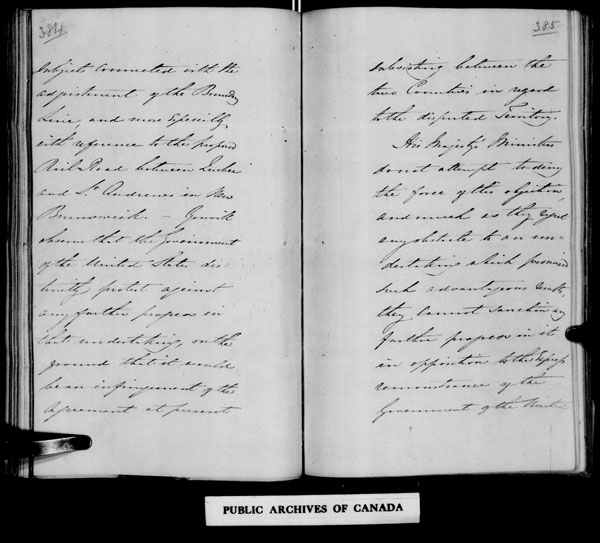 384
Subjects connected with the
adjustment of the Boundary
Line, and more Especially
with reference to the proposed
Rail Road between Quebec
and St. Andrews in New
Brunswick. — You will
observe that the Government
of the United States dis-
tinctly protest against
any further progress in
that undertaking, on the
ground that it would
be an infringement of the
Agreement at present
385
subsisting between the
two Countries in regard
to the disputed Territory.
His Majesty's Ministers
do not attempt to deny
the force of this objection,
and much as they regret
any obstacle to an un-
dertaking which promised
such advantageous results,
they cannot sanction any
further progress in it
in opposition to the Express
remonstrance of the
Government of the United
PUBLIC ARCHIVES OF CANADA